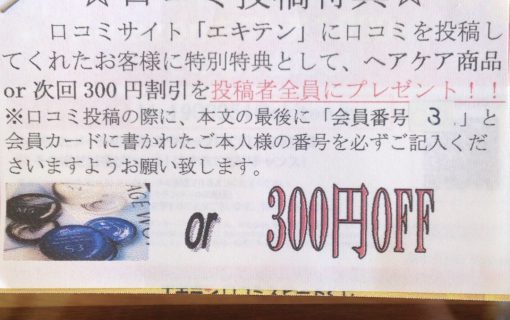 ☆口コミ投稿特典☆
口コミサイト「エキテン」に口コミを投稿し
てくれたお客様に特別特典として、ヘアケア商品
or 次回300円割引を投稿者全員にプレゼント！！
※口コミ投稿の際に、本文の最後に「会員番号 3 」と
会員カードに書かれたご本人様の番号を必ずご記入くだ
さいますようお願い致します。
or 300円OFF